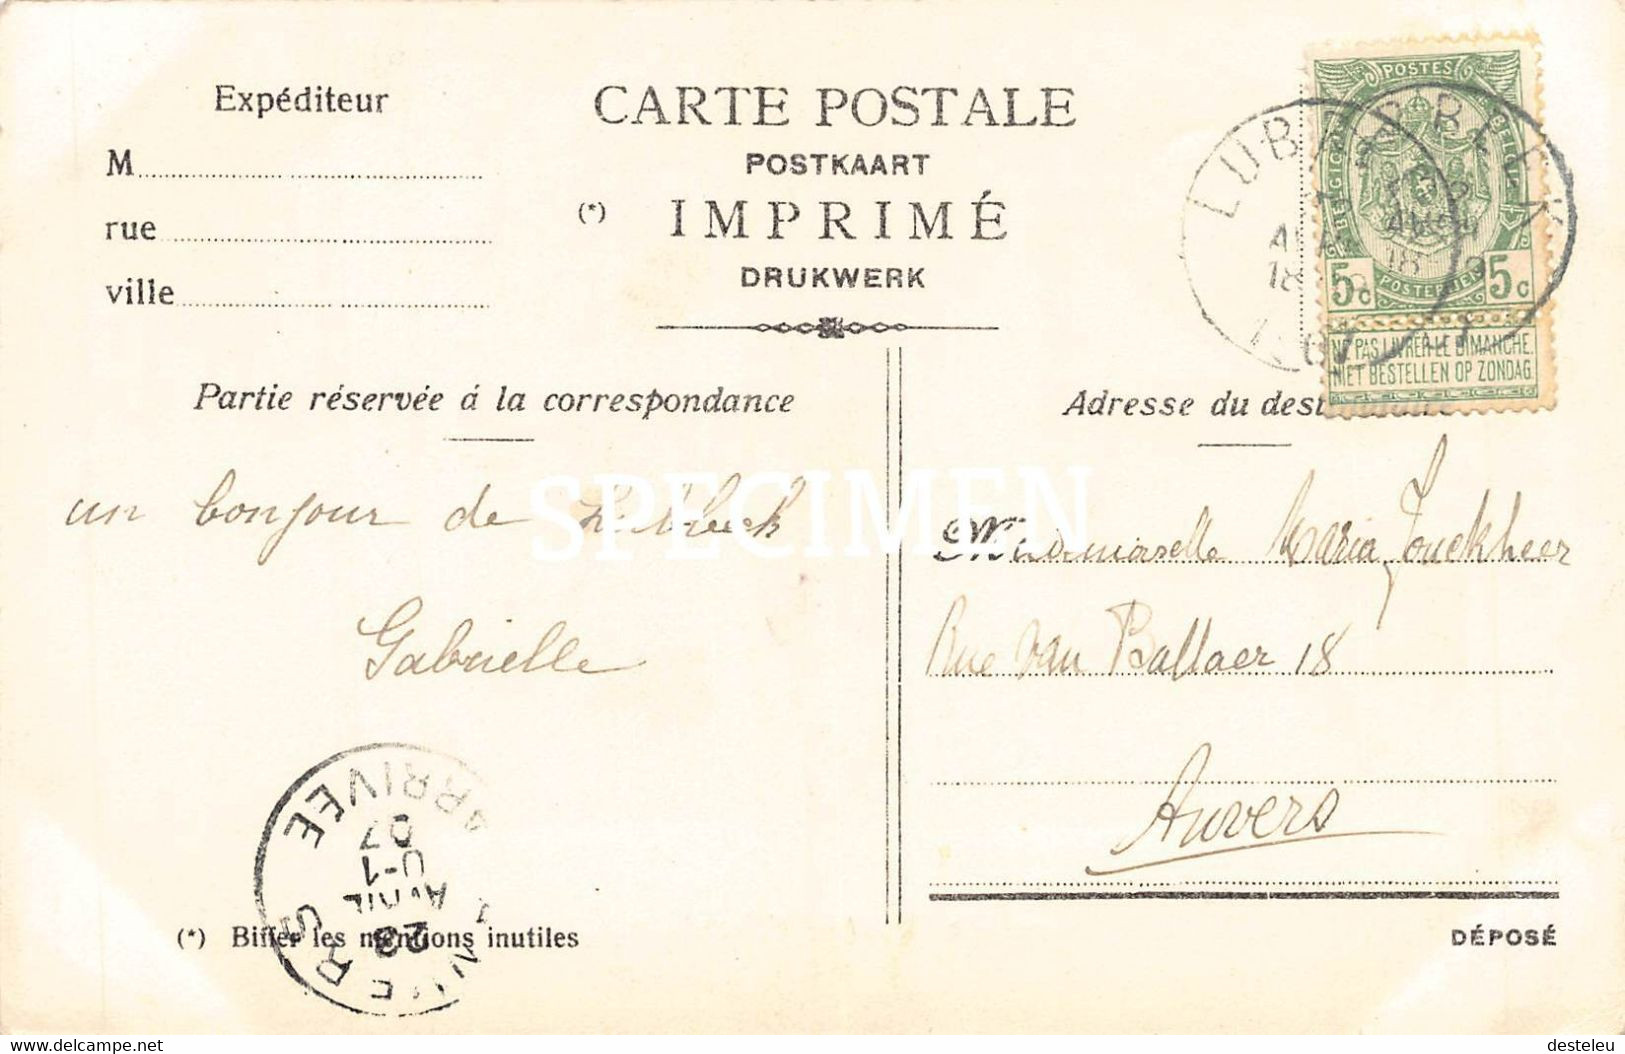 Expéditeur
M
rue
ville
CARTE POSTALE
POSTKAART
(*) IMPRIMÉ
DRUKWERK
POSTES
BELGIQUE
BELGIË
5c 5c
POSTERIJEN
NE PAS LIVRER LE DIMANCHE.
NIET BESTELLEN OP ZONDAG
LUBBEEK
18
07
Partie réservée á la correspondance
Adresse du
un bonjour de Lubbeek
Gabrielle
SPECIMEN
Mademoiselle Maria Jonckheer
Rue van Ballaer 18
Anvers
ARRIVÉE
07
AVRIL
23
(*) Biffer les mentions inutiles
DÉPOSÉ
Delcampe.net
desteleu